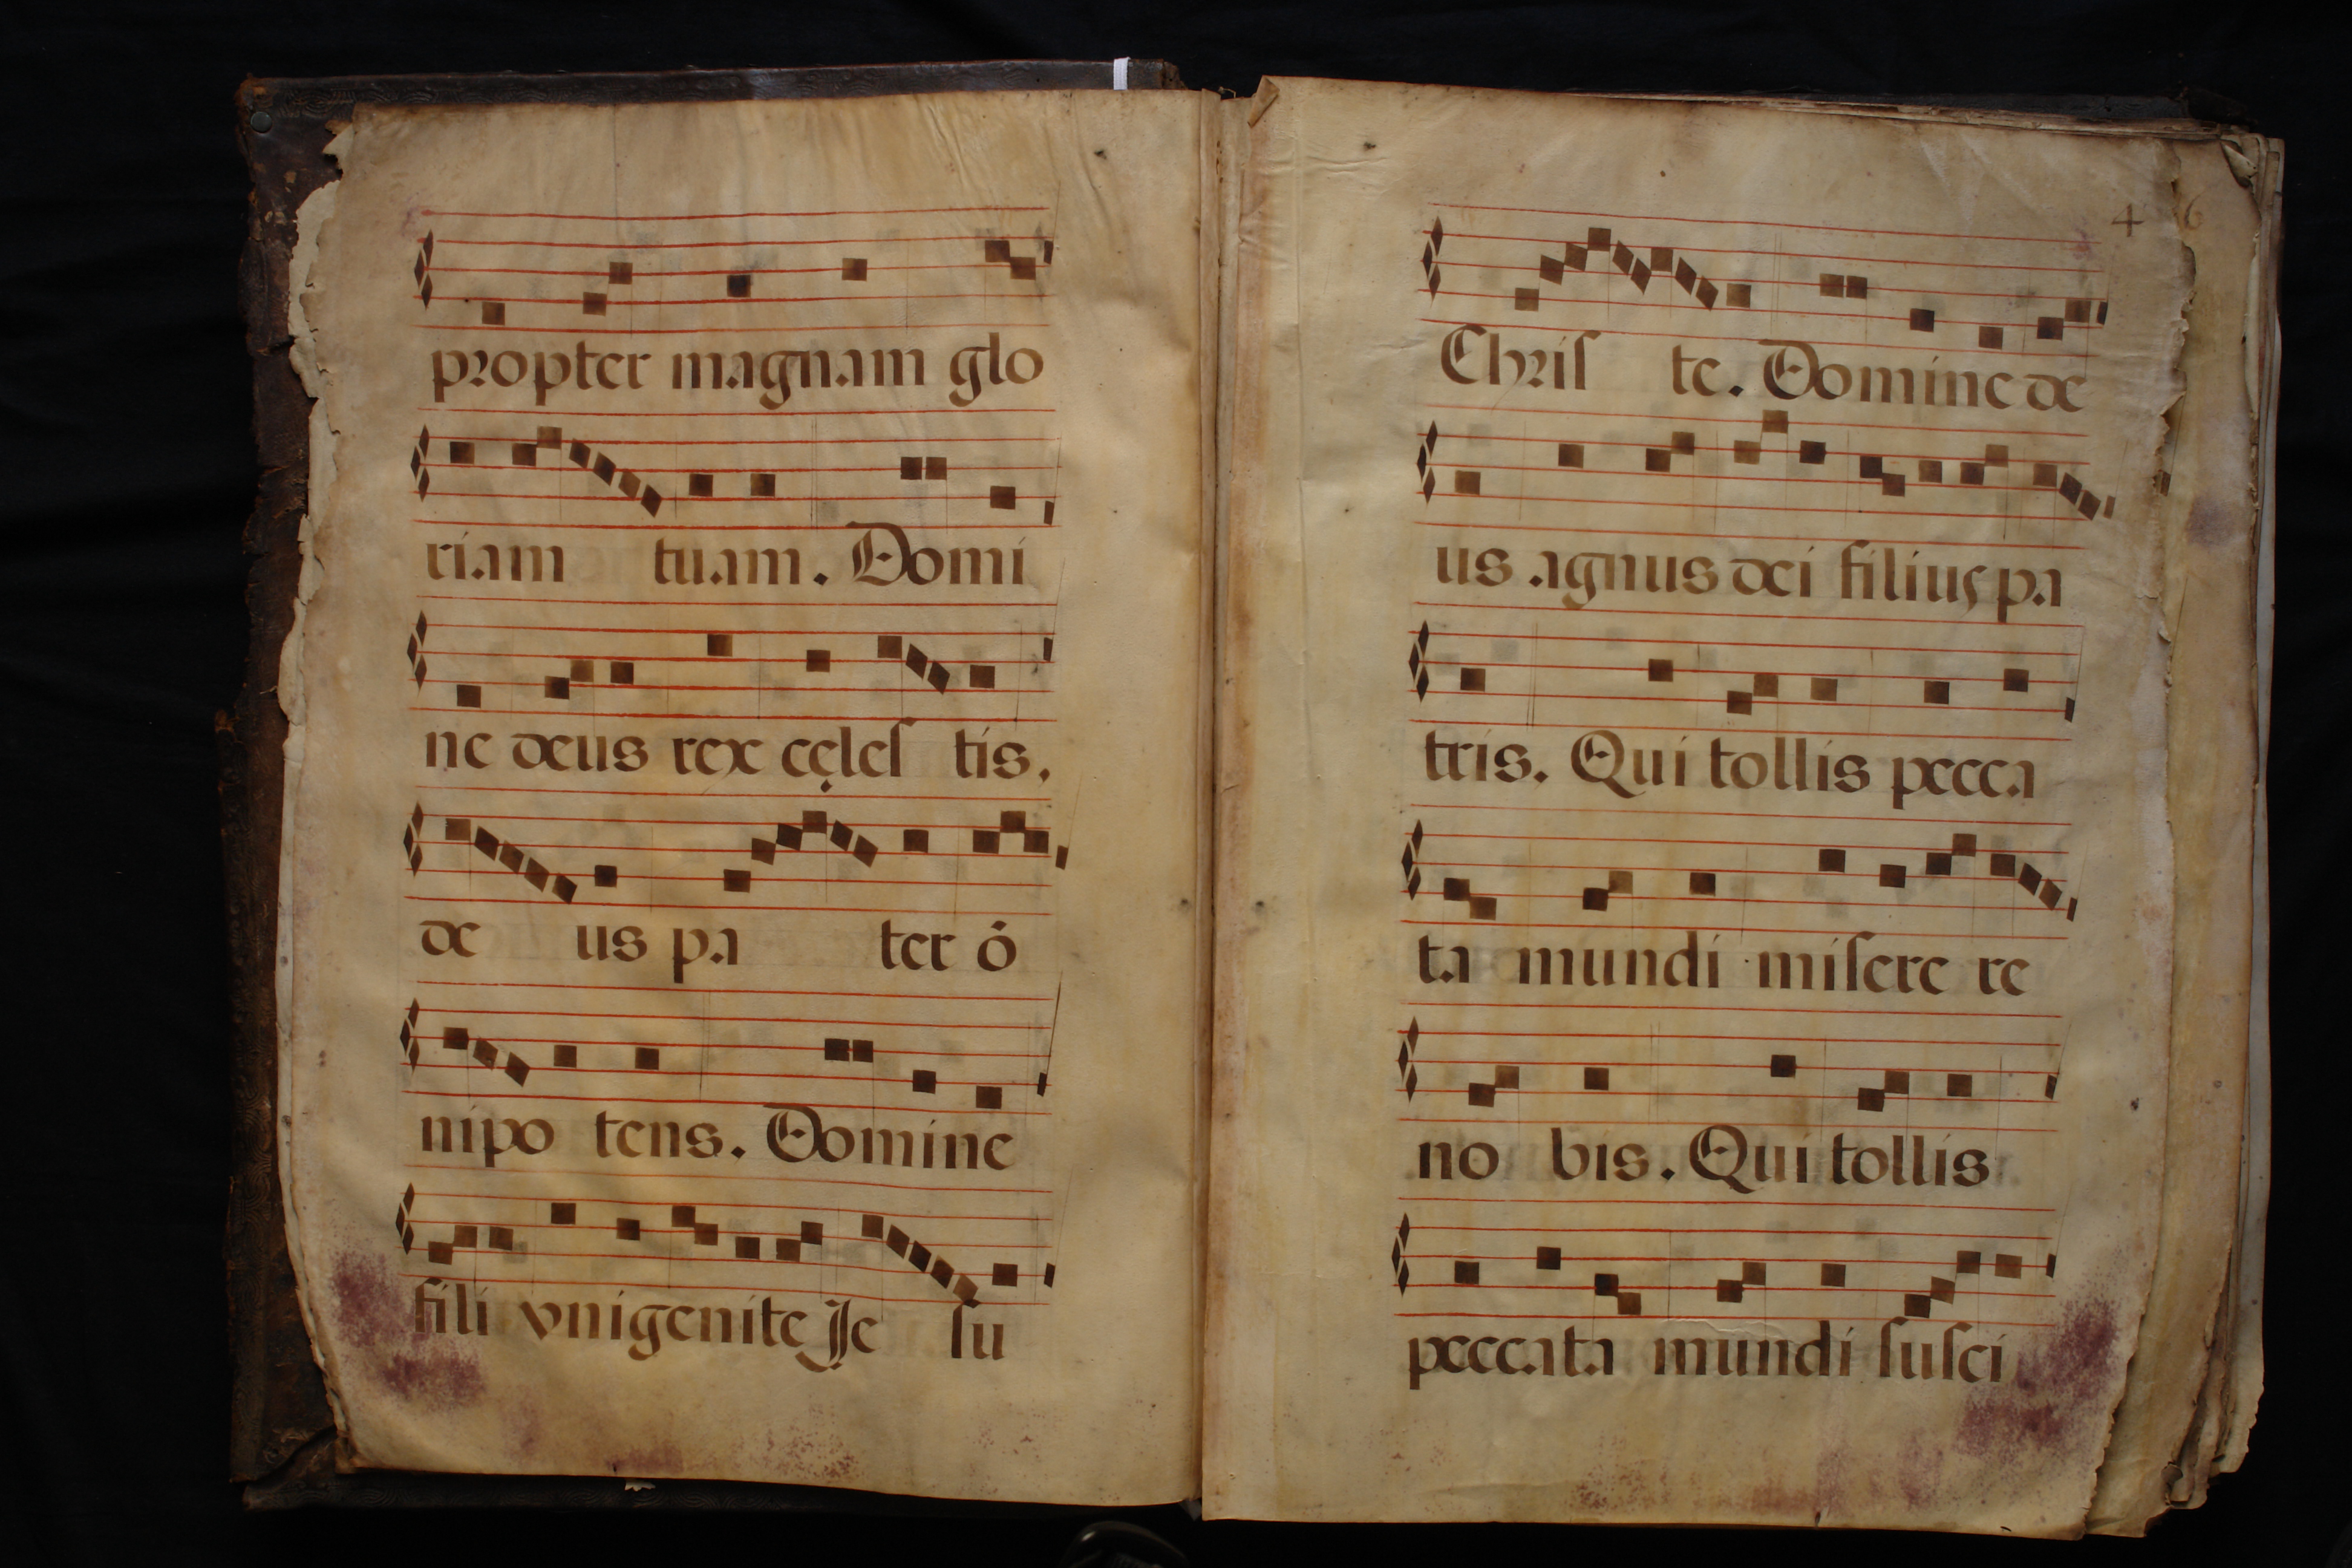 propter magnam glo
riam tuam. Domi
ne deus rex cęles tis.
de us pa ter ō
nipo tens. Domine
fili vnigenite Je su
4 6
Chris te. Domine de
us agnus dei filius pa
tris. Qui tollis pecca
ta mundi misere re
no bis. Qui tollis
peccata mundi susci